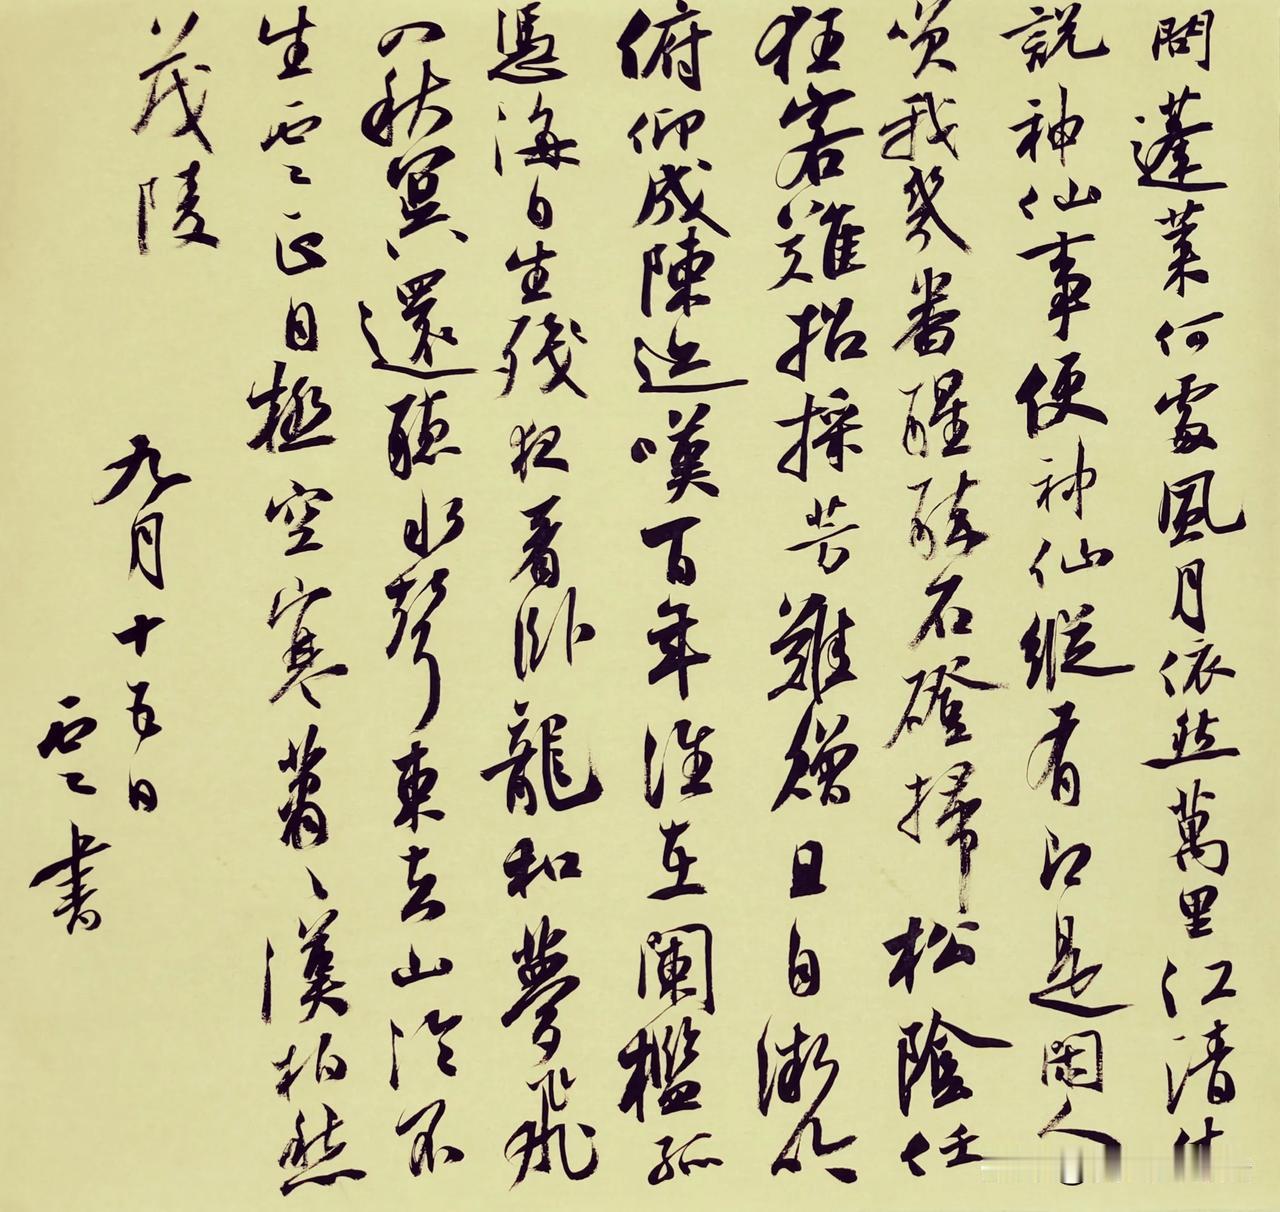 問蓬萊何處風月依然萬里江清休
說神仙事便神仙縱有即是閑人
笑我幾番醒醉石磴掃松陰任
狂客難招採芳難贈且自微吟
俯仰成陳迹嘆百年誰在闌檻孤
憑海日生殘夜看臥龍和夢飛
入秋冥還聽水聲東去山冷不
生雲正目極空寒蕭〻漢柏愁
茂陵
九月十五日
雲書